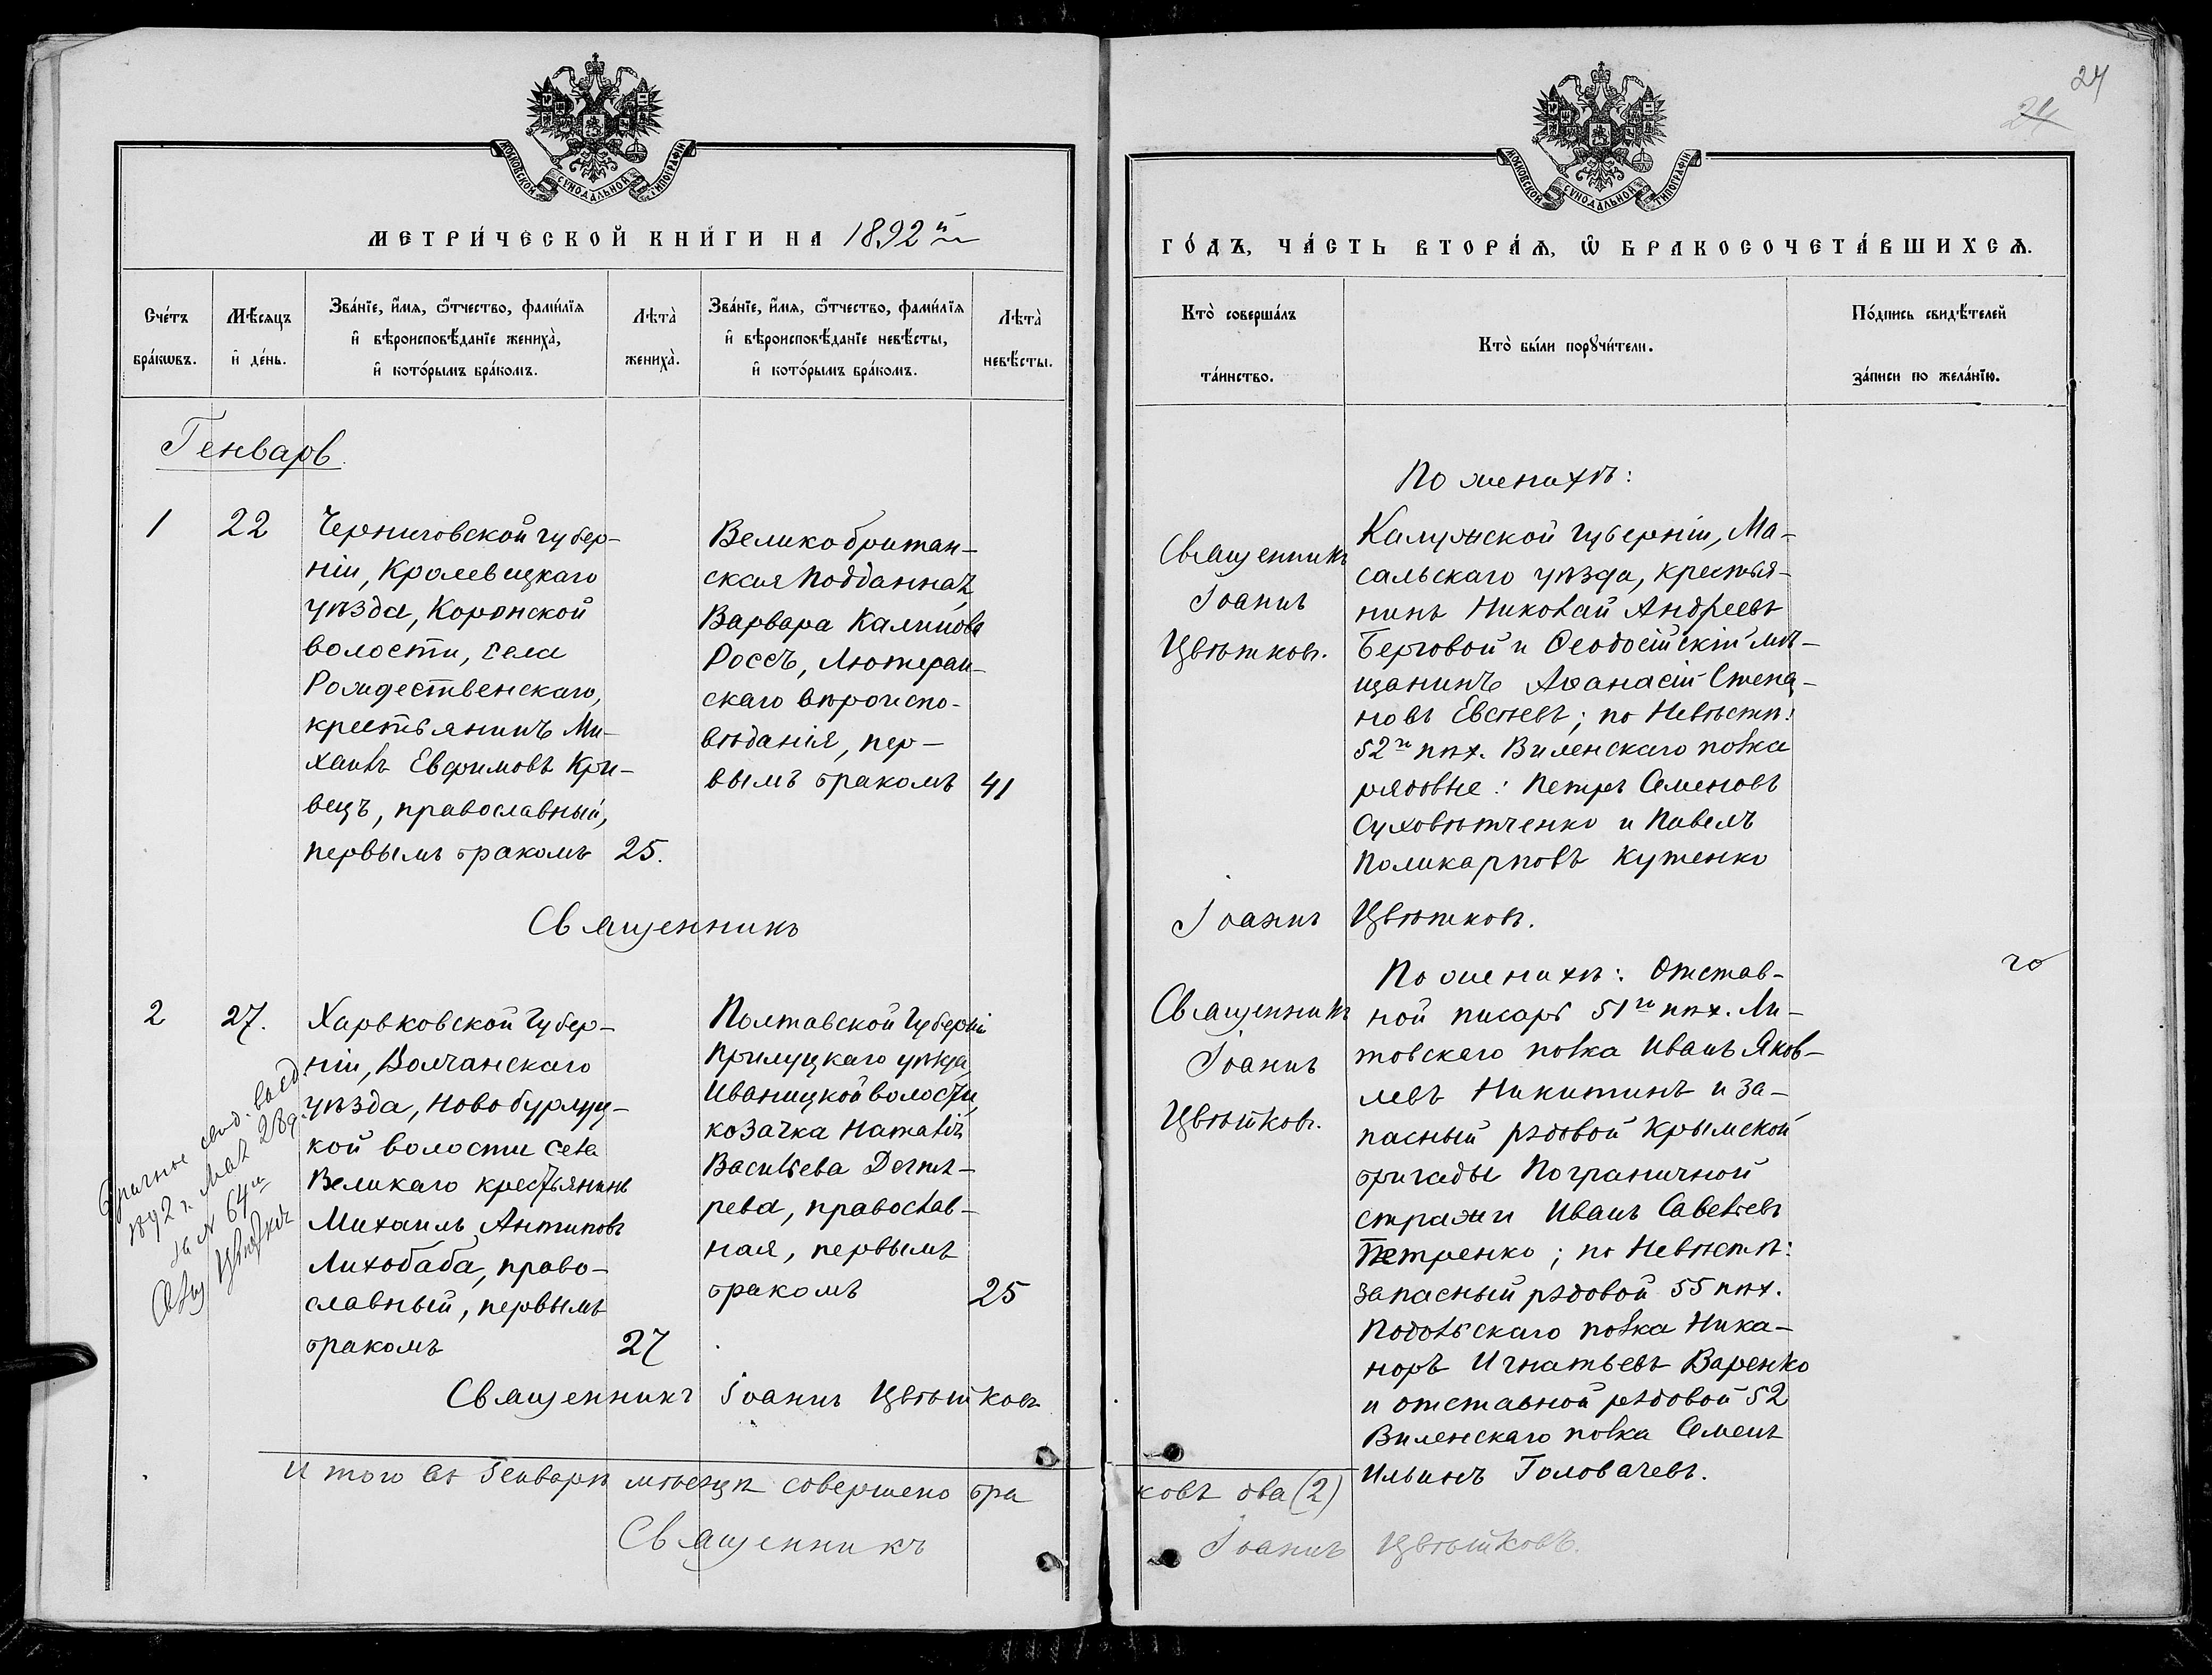 27
24
МОСКОВСКОЙ СѴНОДАЛЬНОЙ ТИПОГРАФІИ
МЕТРИ́ЧЕСКОЙ КНИ́ГИ НА 1892й
Сче́тъ бра́кѡвъ.
Мѣ́сяцъ и҆ де́нь.
Зва́нїе, и҆́мѧ, ѻ҆́тчество, фами́лїѧ
и҆ вѣроисповѣ́данїе жениха̀,
и҆ кото́рымъ бра́комъ.
Лѣта̀ жениха̀.
Зва́нїе, и҆́мѧ, ѻ҆́тчество, фами́лїѧ
и҆ вѣроисповѣ́данїе невѣ́сты,
и҆ кото́рымъ бра́комъ.
Лѣта̀ невѣ́сты.
Генварь
1
22
Черниговской губер-
ніи, Кролевецкаго
уѣзда, Коропской
волости, села
Рождественскаго,
крестьянинъ Ми-
хаилъ Евфимовъ Кри-
вецъ, православный,
первымъ бракомъ 25.
Великобритан-
ская подданная,
Варвара Калинова
Россъ, Лютеран-
скаго вѣроиспо-
вѣданія, пер-
вымъ бракомъ 41
Священникъ
2
27.
Харьковской губер-
ніи, Волчанскаго
уѣзда, Новобурлуц-
кой волости села
Великаго крестьянинъ
Михаилъ Антиповъ
Лихобаба, право-
славный, первымъ
бракомъ 27
Полтавской губерніи
Прилуцкаго уѣзда,
Иваницкой волости,
козачка Наталія
Васильева Дегтя-
рева, православ-
ная, первымъ
бракомъ 25
Брачное свид. выд.
1892 г. Мая 28 д.
за № 64м
Свящ Цвѣтковъ
Священникъ Іоаннъ Цвѣтковъ
Итого въ Генварѣ мѣсяцѣ совершено бра
Священникъ
МОСКОВСКОЙ СѴНОДАЛЬНОЙ ТИПОГРАФІИ
ГО́ДЪ, ЧА́СТЬ ВТОРА́Ѧ, Ѡ҆ БРАКОСОЧЕТА́ВШИХСѦ.
Кто̀ соверша́лъ
та́инство.
Кто̀ бы́ли порꙋчи́тели.
По́дпись свидѣ́телей
за́писи по жела́нїю.
Священникъ
Іоаннъ
Цвѣтковъ.
По женихѣ:
Калужской губерніи, Ма-
сальскаго уѣзда, крестья-
нинъ Николай Андреевъ
Берговой и Ѳеодосійскій мѣ-
щанинъ Аѳанасій Степа-
новъ Евсѣевъ; по Невѣстѣ:
52го пѣх. Виленскаго полка
рядовые: Петръ Семеновъ
Суховѣтченко и Павелъ
Поликарповъ Кутенко
Іоаннъ Цвѣтковъ.
Священникъ
Іоаннъ
Цвѣтковъ.
По женихѣ: Отстав-
ной писарь 51го пѣх. Ли-
товскаго полка Иванъ Яков-
левъ Никитинъ и за-
пасный рядовой Крымской
бригады Пограничной
стражи Иванъ Савельевъ
Петренко; по Невѣстѣ:
запасный рядовой 55 пѣх.
Подольскаго полка Ника-
норъ Игнатьевъ Варенко
и отставной рядовой 52
Виленскаго полка Семенъ
Ильинъ Головачевъ.
ковъ два (2)
Іоаннъ Цвѣтковъ.